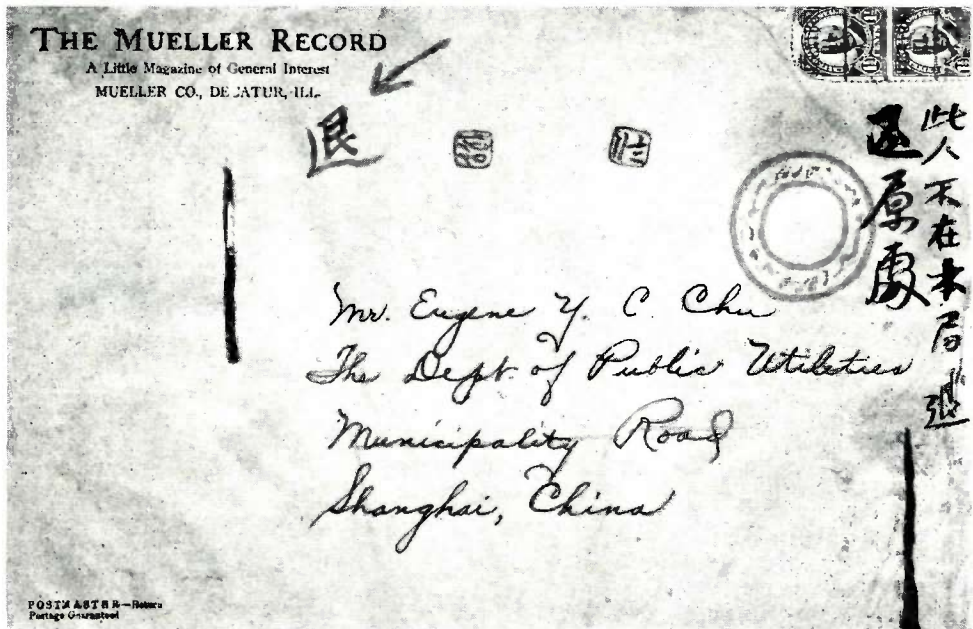 THE MUELLER RECORD
A Little Magazine of General Interest
MUELLER CO., DECATUR, ILL.
退
Mr. Eugene Y. C. Chu
The Dept. of Public Utilities
Municipality Road
Shanghai, China
此人不在本局退
還原處
POSTMASTER—Return
Postage Guaranteed